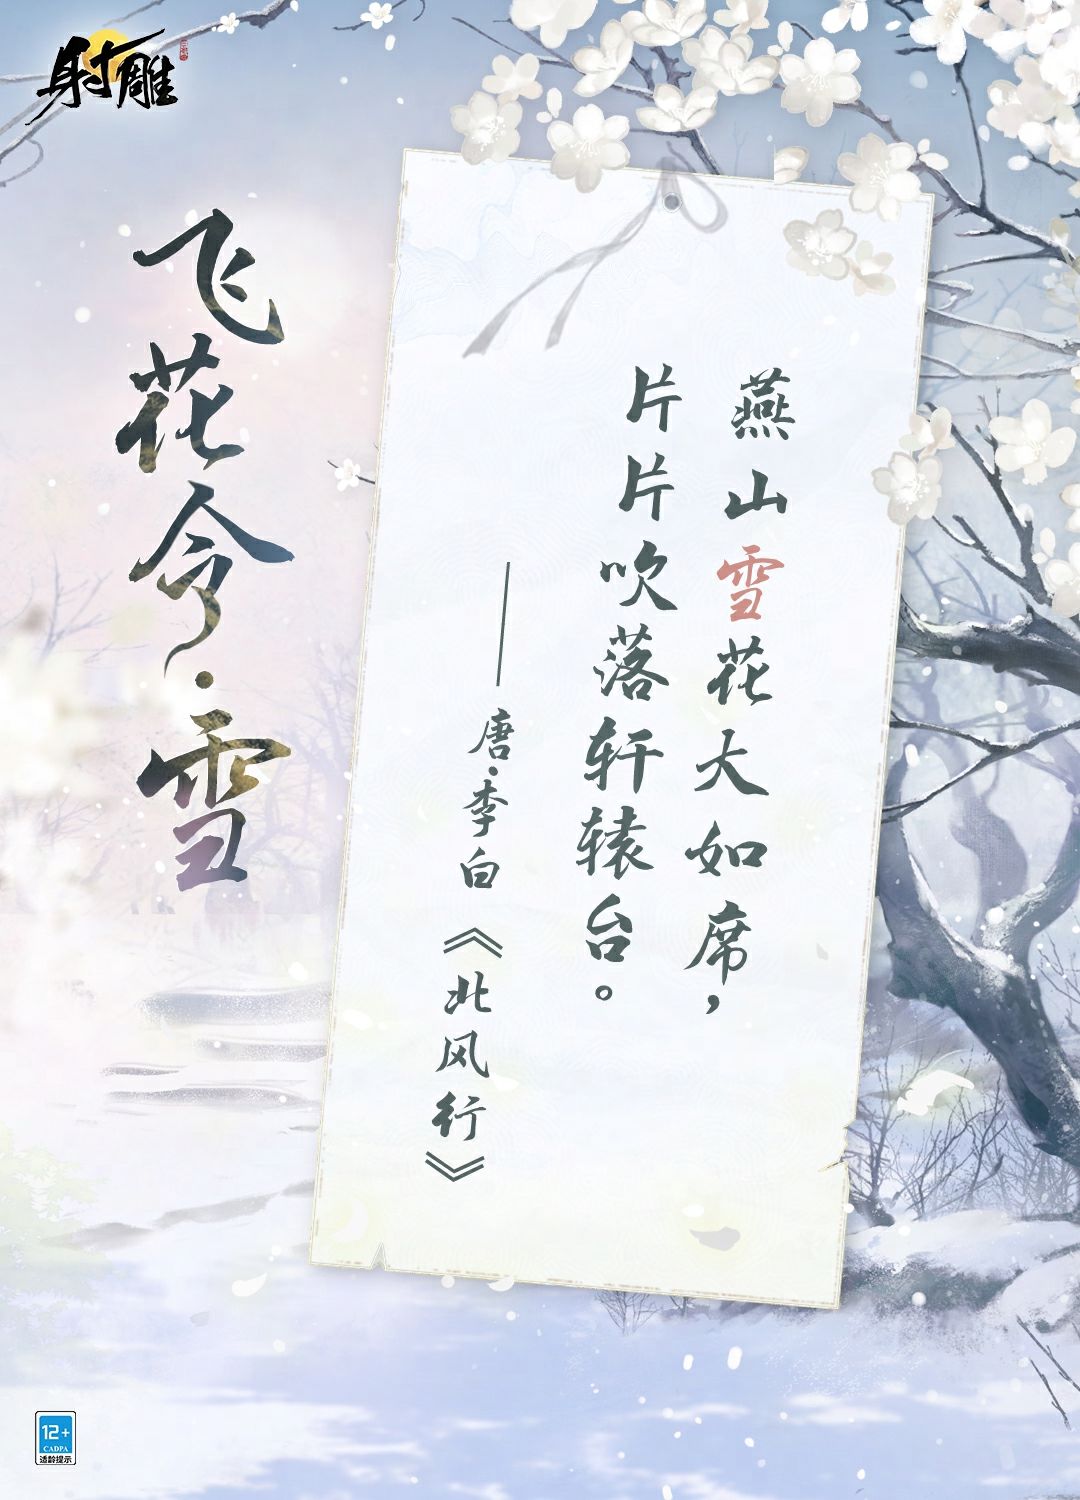 射雕
飞花令·雪
燕山雪花大如席，
片片吹落轩辕台。
——唐·李白《北风行》
12+
CADPA
适龄提示